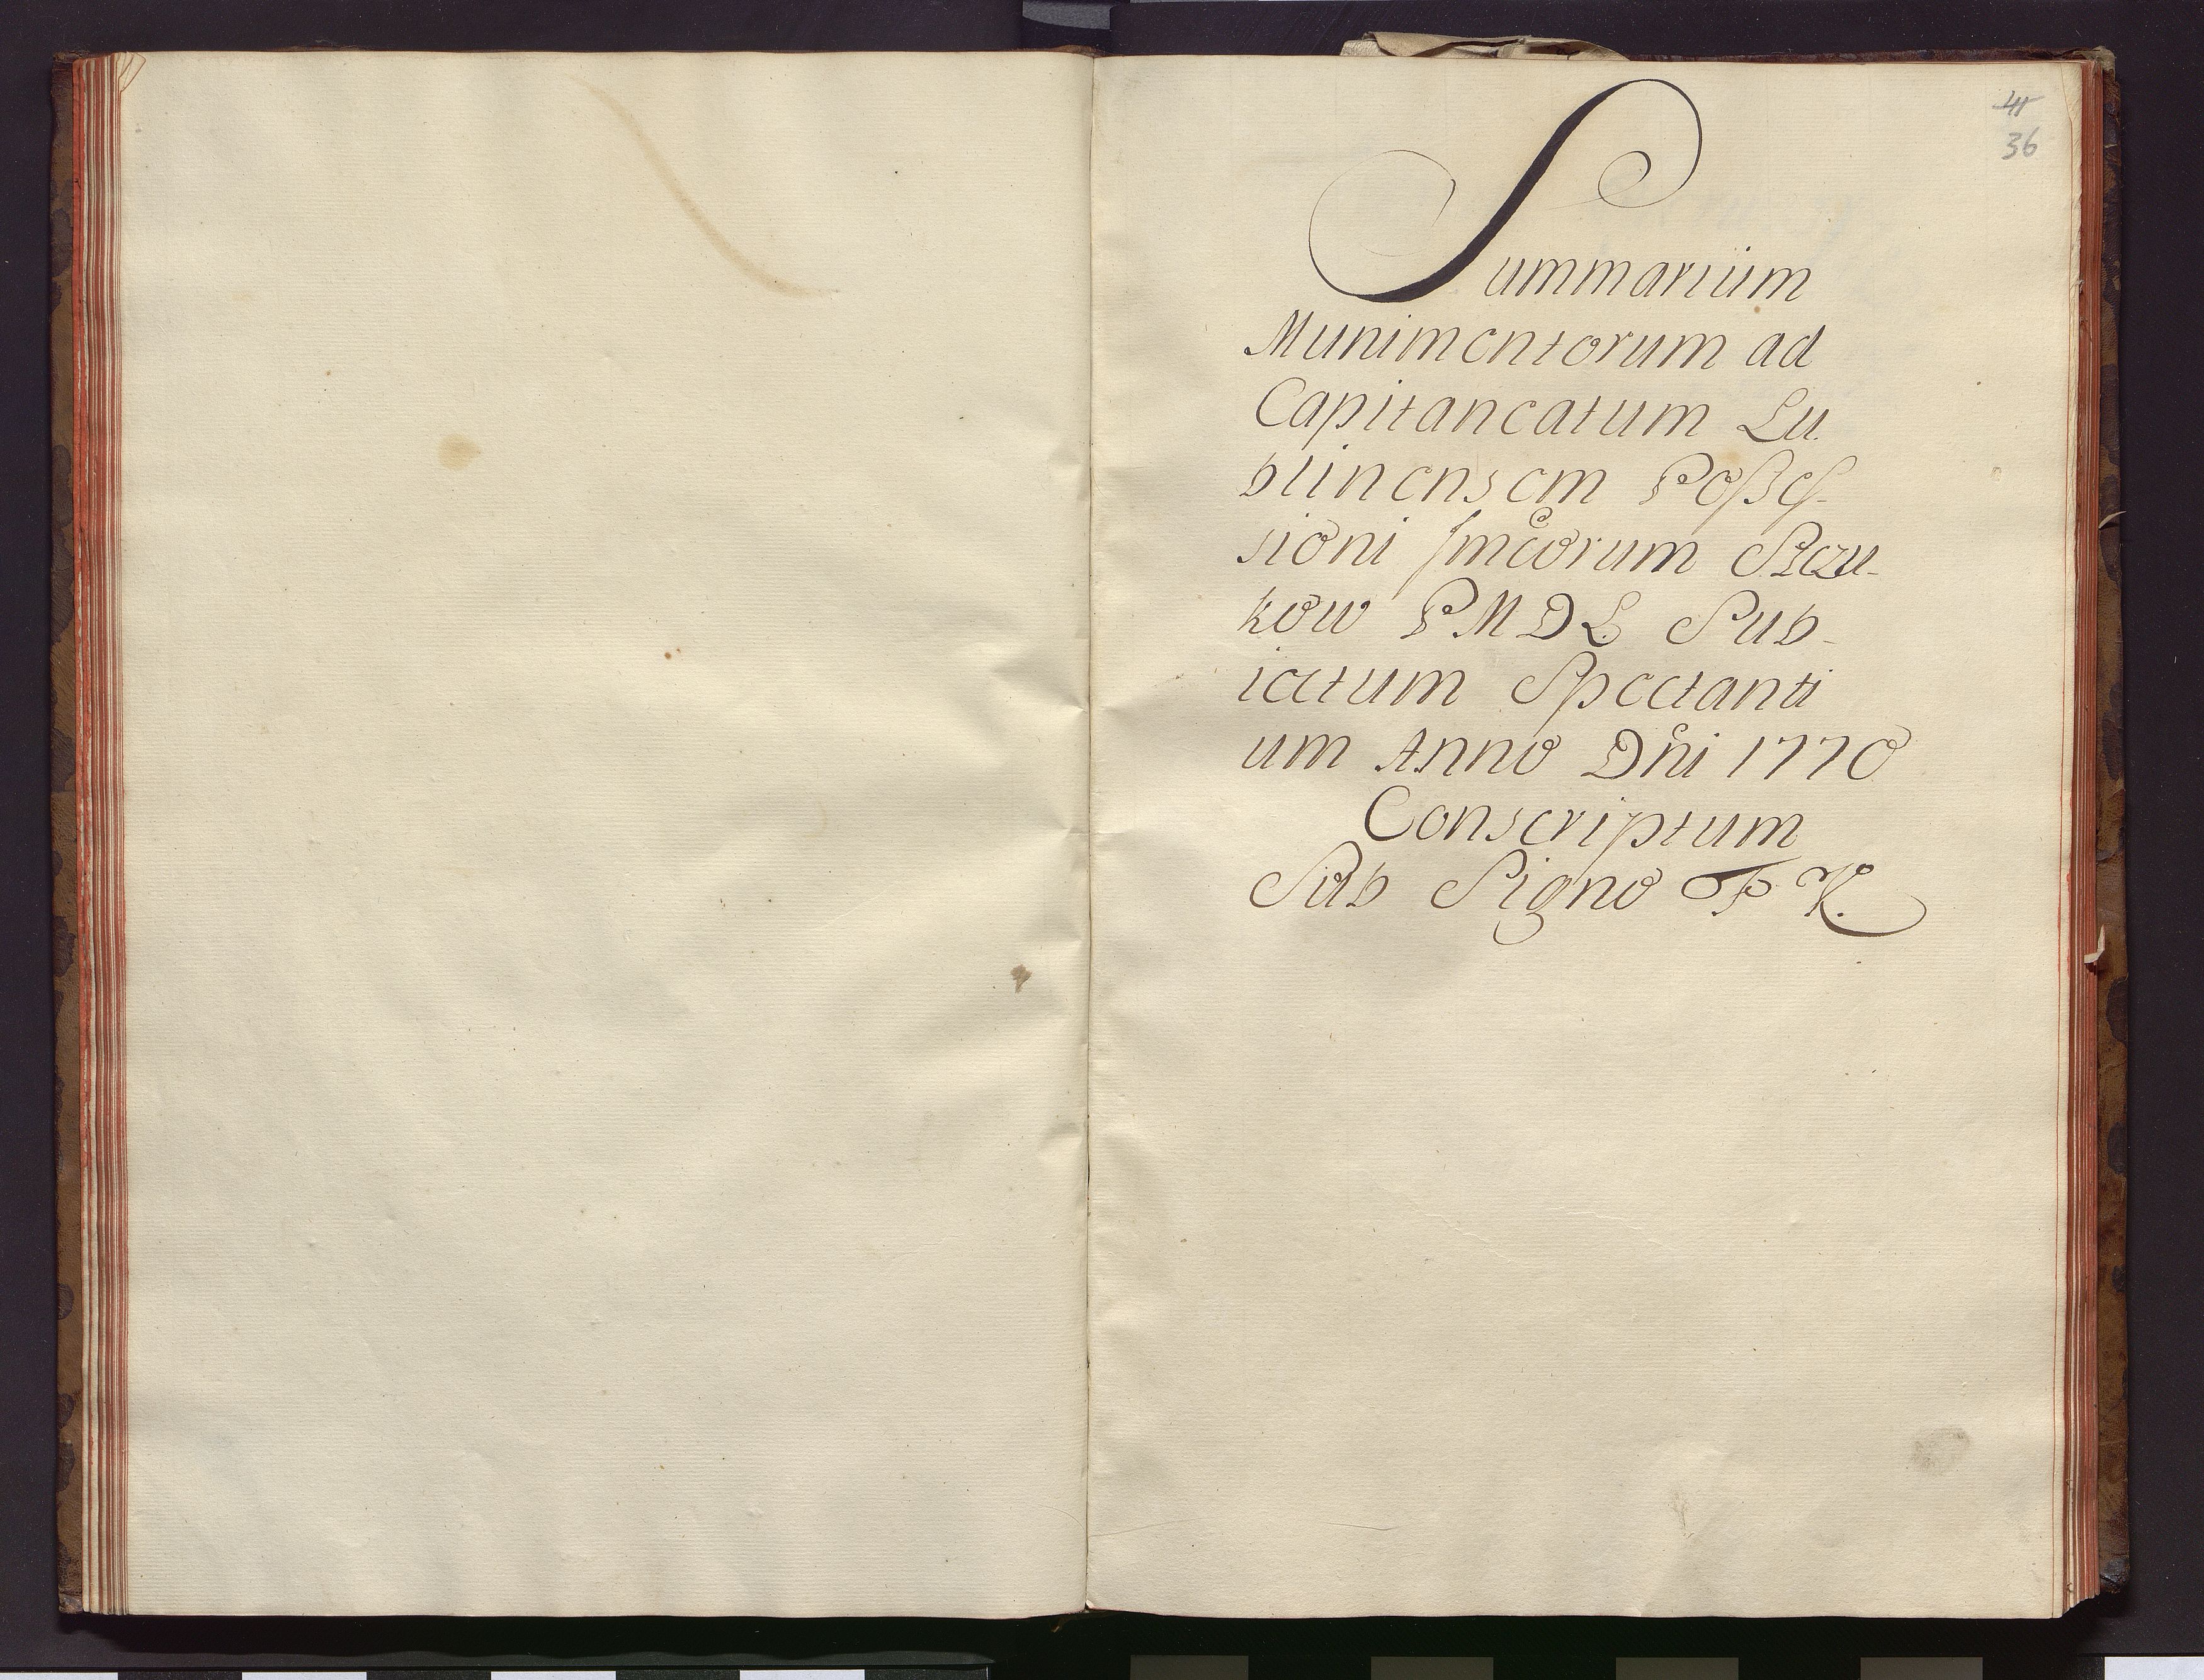 36
Summarium
Munimentorum ad
Capitaneatum Lu
blinensem Poßes-
sioni
kow PMDL Sub-
iectum Spectanti
um Anno Dni 1770
Conscriptum
Sub Signo F K.